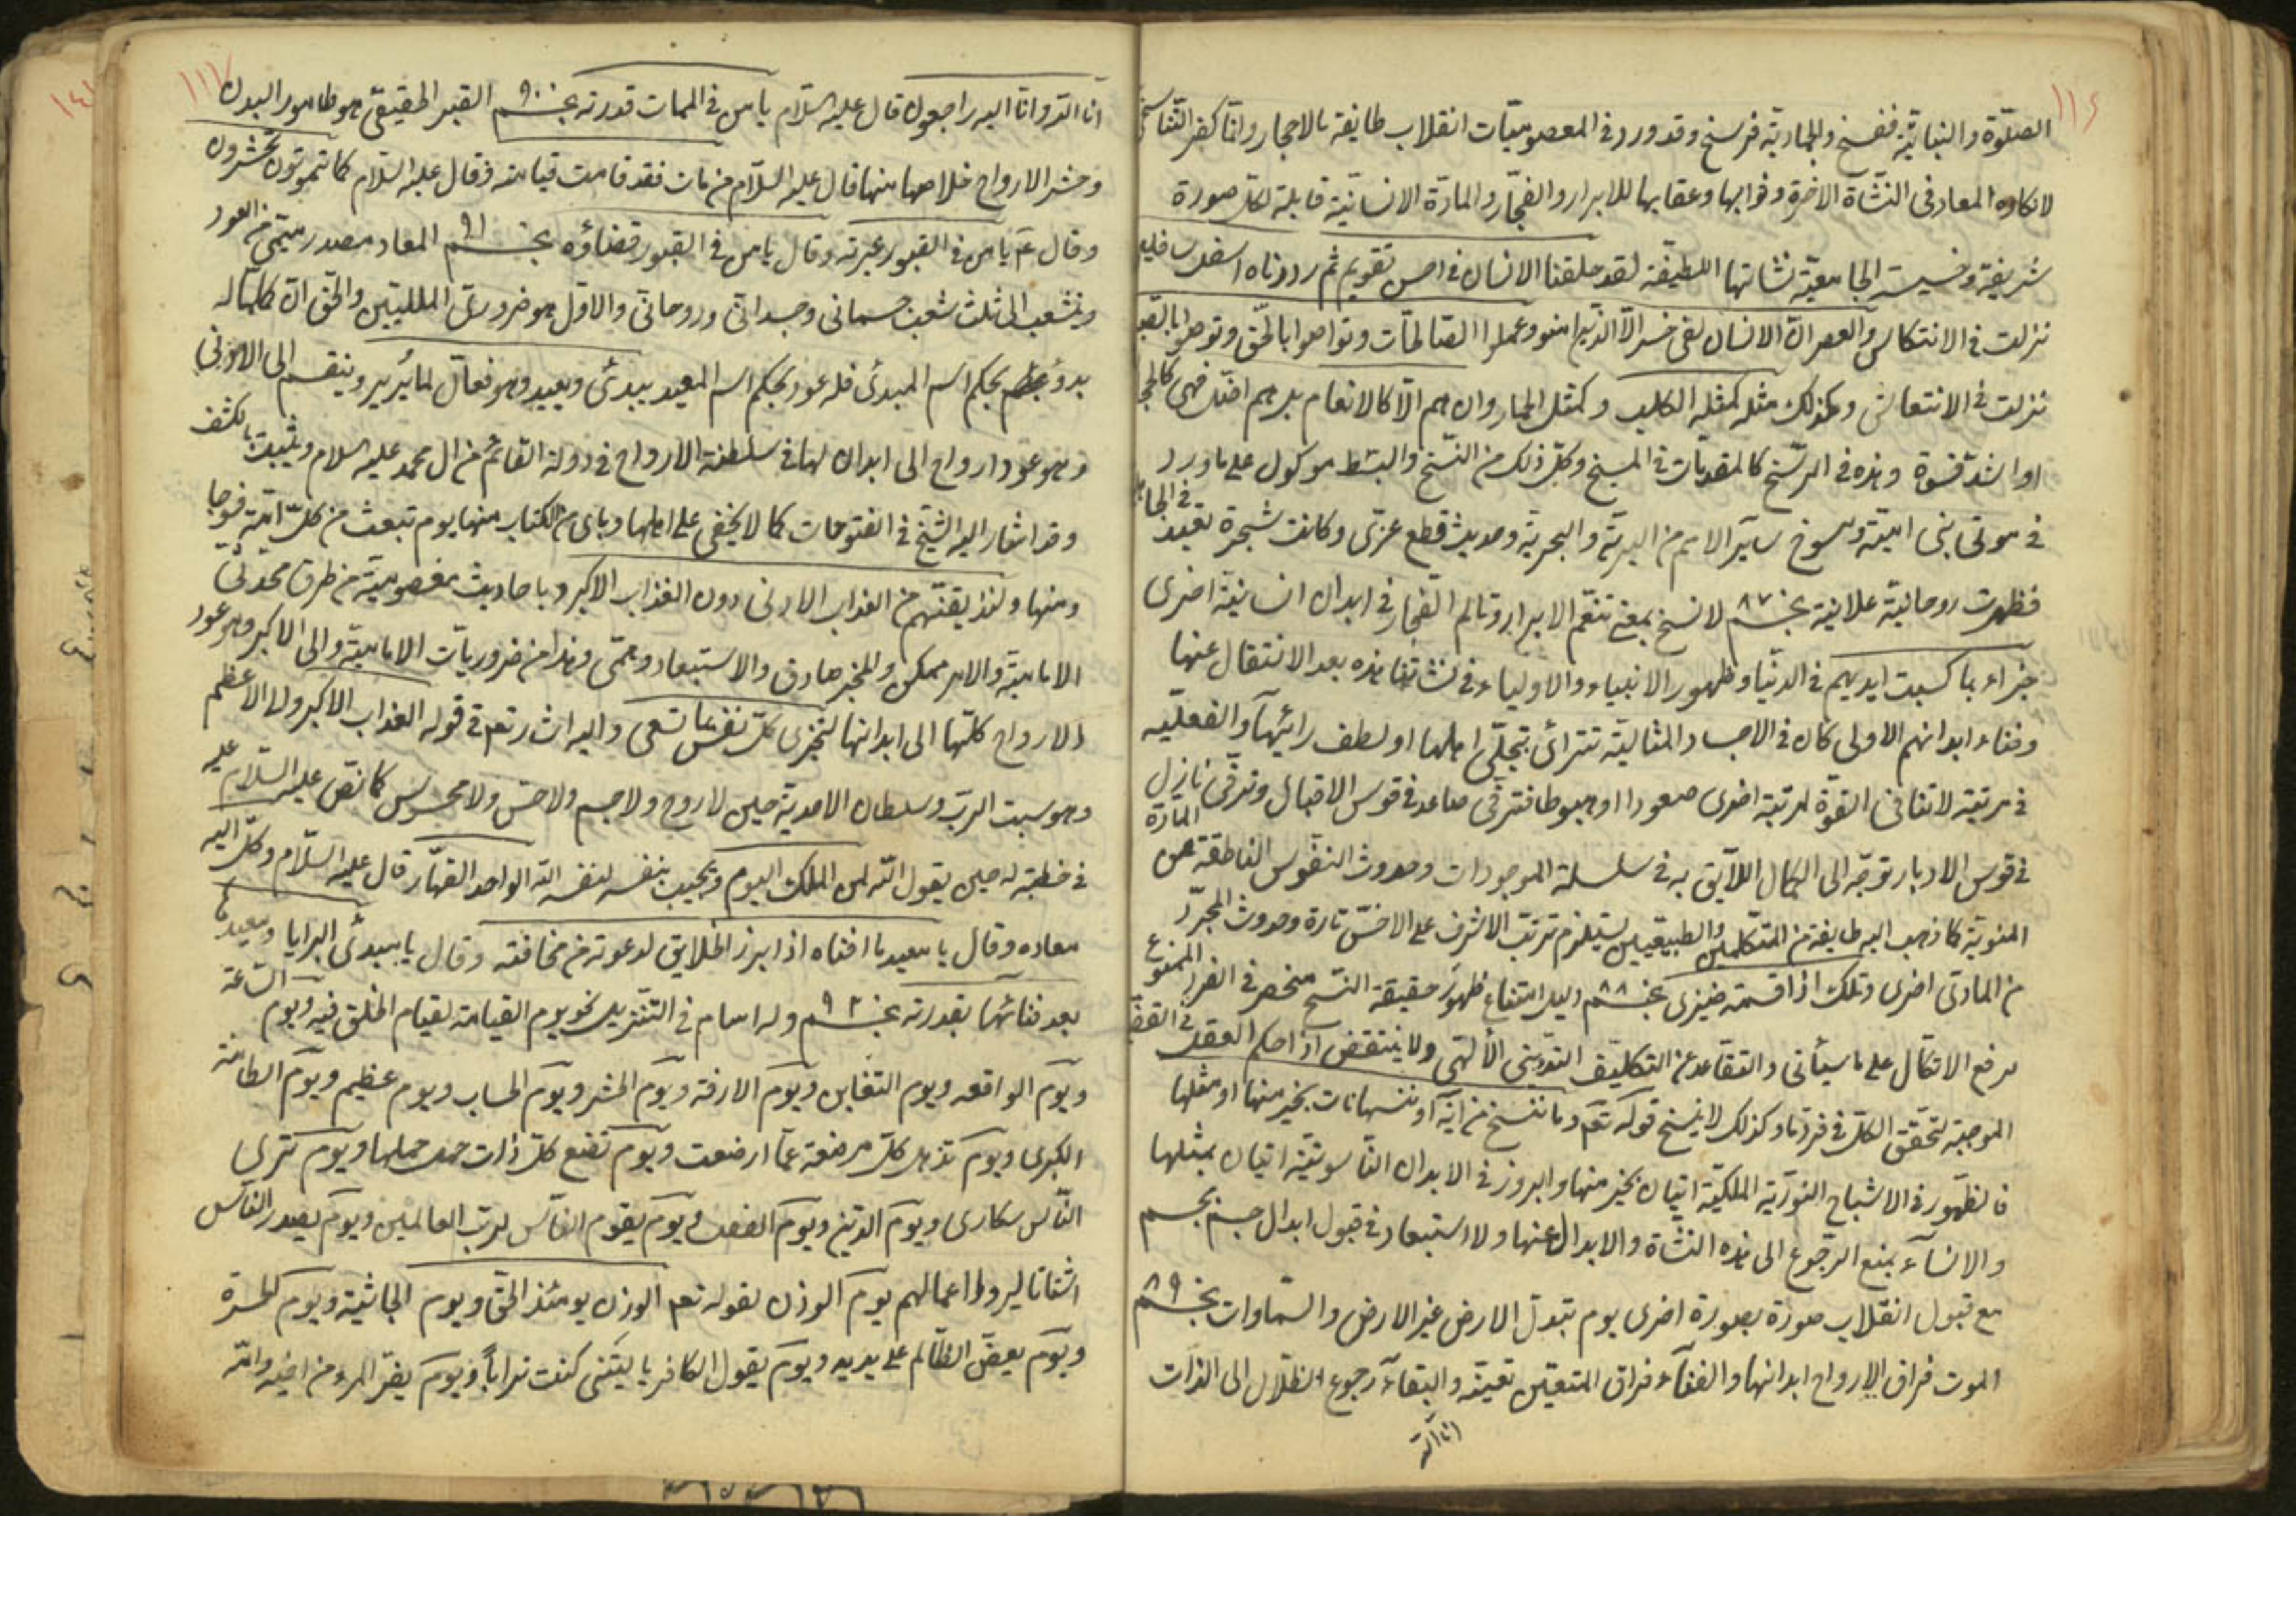 ١١٦
الصلوة والنباتية ففسخ والجمادية فرسخ وقد ورد في المعصوميات انقلاب طايفة بالاحجار وانما كفر التناسخى
لانكاره المعاد في النشأة الاخرة وثوابها وعقابها للابرار والفجار والمادة الانسانية قابلة لكل صورة
شريفة وخسيسة لجامعية نشاتها اللطيفة لقد خلقنا الانسان في احسن تقويم ثم رددناه اسفل سافلين
نزلت في الانتكاس والعصر ان الانسان لفى خسر الا الذين امنوا وعملوا الصالحات وتواصوا بالحق وتوصوا بالصبر
نزلت في الانتعاش وكذلك مثله كمثل الكلب وكمثل الحمار وان هم الا كالانعام بل هم اضل فهى كالحجارة
او اشد قسوة وهذه في الرسخ كالمقدمات في المسخ وكل ذلك من النسخ والبسط موكول على ما ورد
في موتى بنى امية ومسوخ ساير الامم من البرية والبحرية وحديث قطع عزى وكانت شجرة تعبد في الجاهلية
فظهرت روحانية علانية نجم ٨٧ لا نسخ بمعنى تنعم الابرار وتالم الفجار في ابدان انسانية اخرى
جزاء بما كسبت ايديهم في الدنيا وظهور الانبياء والاولياء في نشأتنا هذه بعد الانتقال عنها
وفناء ابدانهم الاولى كان في الاجساد المثالية تترائى بتجلى اهلها او لطف رائيها والفعلية
في مرتبة لا تنافى القوة لمرتبة اخرى صعودا او هبوطا فترقى صاعد في قوس الاقبال وترقى نازل
في قوس الادبار توجه الى الكمال اللايق به في سلسلة الموجودات وحدوث النفوس الناطقة من المادة
المنوية كما ذهب اليه طايفة من المتكلمين والطبيعيين يستلزم ترتب الاشرف على الاخس تارة وحدوث المجرد
من المادى اخرى وتلك اذا قسمة ضيزى نجم ٨٨ دليل امتناع ظهور حقيقة النسخ منحصر في الفرد الممنوع
برفع الاتكال على ما سيأتى والتقاعد عن التكليف الدينى الالهى ولا ينتقض اذا حكم العقل في القضية
الموجبة لتحقق الكل في فرد ما وكذلك لا ينسخ قوله تعم وما ننسخ من اية او ننسها نات بخير منها او مثلها
فالظهور في الاشباح النورية الملكية اتيان بخير منها والبروز في الابدان الناسوتية اتيان بمثلها
والانساء بمنع الرجوع الى هذه النشأة والابدال عنها ولا استبعاد في قبول ابدال جسم بجسم
مع قبول انقلاب صورة بصورة اخرى يوم تبدل الارض غير الارض والسماوات نجم ٨٩
الموت فراق الارواح ابدانها والفناء فراق المتعين تعينه والبقاء رجوع الظلال الى الذات
انا لله
١١٧
انا لله وانا اليه راجعون قال عليه السلام يا من في الممات قدرته نجم ٩٠ القبر الحقيقى هو ظاهور البدن
وحشر الارواح خلاصها منها قال عليه السلام من مات فقد قامت قيامته وقال عليه السلام كما تموتون تحشرون
وقال ع يا من في القبور عبرته وقال يا من في القبور قضاؤه نجم ٩١ المعاد مصدر ميمى من العود
وينشعب الى ثلث شعب جسمانى وجسدانى وروحانى والاول هو ضرورى المليين والحق ان كلما له
بدؤ بحكم اسم المبدئ فله عود بحكم اسم المعيد يبدئ ويعيد وهو فعال لما يريد وينقسم الى الادنى
وهو عود ارواح الى ابدان لها في سلطنة الارواح في دولة القائم من ال محمد عليه السلام ويثبت بالكشف
وقد اشار اليه الشيخ في الفتوحات كما لا يخفى على اهلها وباى من الكتاب منها يوم نبعث من كل امة فوجا
ومنها ولنذيقنهم من العذاب الادنى دون العذاب الاكبر وباحاديث معصومية من طرق محدثى
الامامية والامر ممكن والمخبر صادق والاستبعاد وهمى وهذا من ضروريات الامامية والى الاكبر وهو عود
الارواح كلها الى ابدانها لتجزى كل نفس بما تسعى واليه اشار تعم في قوله العذاب الاكبر والى الاعظم
وهو سبت الرب وسلطان الاحدية حين لا روح ولا جسم ولا حس ولا محسوس كما نص عليه السلام عليه
في خطبة له حين يقول الله لمن الملك اليوم ويجيب بنفسه لنفسه الله الواحد القهار قال عليه السلام وكل اليه
معاده وقال يا معيد ما افناه اذا برز الخلايق لدعوته من مخافته وقال يا مبدئ البرايا ومعيدها
بعد فنائها بقدرته نجم ٩٢ وله اسام في التنزيل نحو يوم القيامة لقيام الخلق فيه ويوم الساعة
ويوم الواقعه ويوم التغابن ويوم الازفة ويوم الحشر ويوم الحساب ويوم عظيم ويوم الطامة
الكبرى ويوم تذهل كل مرضعة عما ارضعت ويوم تضع كل ذات حمل حملها ويوم ترى
الناس سكارى ويوم الدين ويوم الفصل ويوم يقوم الناس لرب العالمين ويوم يصدر الناس
اشتاتا ليروا اعمالهم يوم الوزن لقوله تعم الوزن يومئذ الحق ويوم الجاثية ويوم الحسرة
ويوم يعض الظالم على يديه ويوم يقول الكافر يا ليتنى كنت ترابا ويوم يفر المرء من اخيه وامه